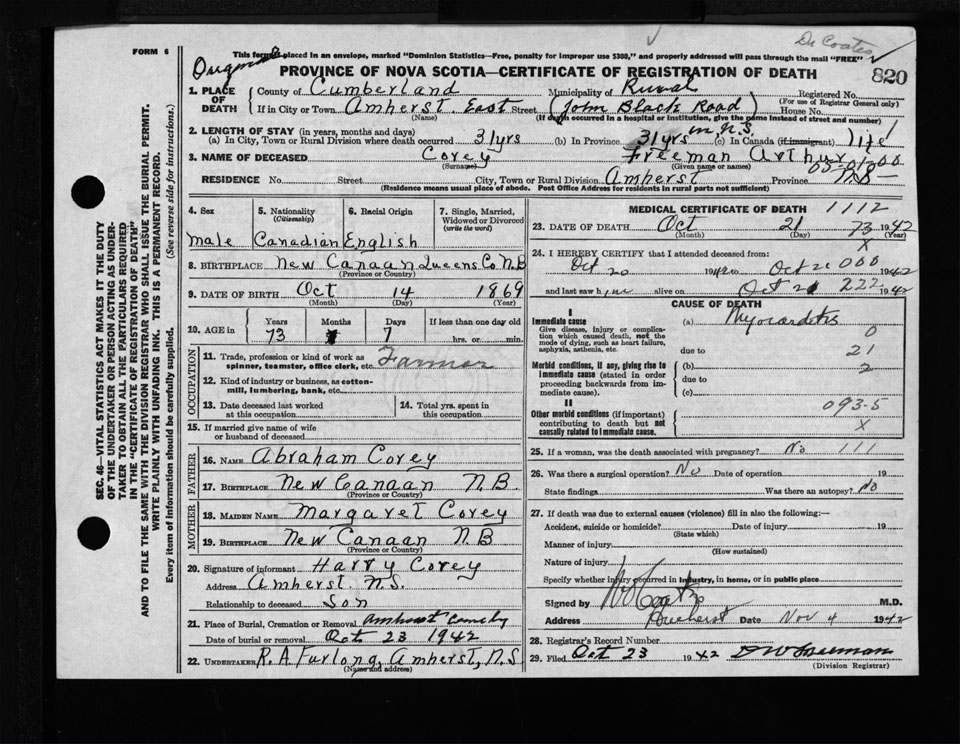 Dr Coates
FORM 6
This form if placed in an envelope, marked "Dominion Statistics—Free, penalty for improper use $300," and properly addressed will pass through the mail "FREE"
820
PROVINCE OF NOVA SCOTIA—CERTIFICATE OF REGISTRATION OF DEATH
1. PLACE OF DEATH
County of Cumberland Municipality of Rural Registered No.
(For use of Registrar General only)
If in City or Town Amherst East Street (John Black Road) House No.
(Name) (If death occurred in a hospital or institution, give the name instead of street and number)
2. LENGTH OF STAY (in years, months and days)
(a) In City, Town or Rural Division where death occurred 31 yrs (b) In Province 31 yrs in N.S. (c) In Canada (if immigrant) life
3. NAME OF DECEASED Corey Freeman Arthur
(Surname) (Given name or names)
RESIDENCE No. Street City, Town or Rural Division Amherst Province N.S.
(Residence means usual place of abode. Post Office Address for residents in rural parts not sufficient)
SEC. 46—VITAL STATISTICS ACT MAKES IT THE DUTY
OF THE UNDERTAKER OR PERSON ACTING AS UNDER-
TAKER TO OBTAIN ALL THE PARTICULARS REQUIRED
IN THE "CERTIFICATE OF REGISTRATION OF DEATH"
AND TO FILE THE SAME WITH THE DIVISION REGISTRAR WHO SHALL ISSUE THE BURIAL PERMIT.
WRITE PLAINLY WITH UNFADING INK. THIS IS A PERMANENT RECORD.
Every item of information should be carefully supplied. (See reverse side for instructions.)
4. Sex
Male
5. Nationality
(Citizenship)
Canadian
6. Racial Origin
English
7. Single, Married,
Widowed or Divorced
(write the word)
8. BIRTHPLACE New Canaan Queens Co N.B
(Province or Country)
9. DATE OF BIRTH Oct 14 1869
(Month) (Day) (Year)
10. AGE in Years Months Days If less than one day old
73 7 hrs. or min.
OCCUPATION
11. Trade, profession or kind of work as
spinner, teamster, office clerk, etc. Farmer
12. Kind of industry or business, as cotton-
mill, lumbering, bank, etc.
13. Date deceased last worked
at this occupation
14. Total yrs. spent in
this occupation
15. If married give name of wife
or husband of deceased
FATHER
16. NAME Abraham Corey
17. BIRTHPLACE New Canaan N.B.
(Province or Country)
MOTHER
18. MAIDEN NAME Margaret Corey
19. BIRTHPLACE New Canaan N B
(Province or Country)
20. Signature of informant Harry Corey
Address Amherst N.S.
Relationship to deceased Son
21. Place of Burial, Cremation or Removal Amherst
Date of burial or removal Oct 23 1942
22. UNDERTAKER R. A. Furlong, Amherst, N.S
(Name and address)
MEDICAL CERTIFICATE OF DEATH 1112
23. DATE OF DEATH Oct 21 73 1942
(Month) (Day) (Year)
X
24. I HEREBY CERTIFY that I attended deceased from:
Oct 20 1942 to Oct 21 000 1942
and last saw him alive on Oct 21 222 1942
CAUSE OF DEATH
I
Immediate cause
Give disease, injury or complica-
tion which caused death, not the
mode of dying, such as heart failure,
asphyxia, asthenia, etc.
(a) Myocarditis
0
due to 21
Morbid conditions, if any, giving rise to
immediate cause (stated in order
proceeding backwards from im-
mediate cause).
(b) 2
due to
(c)
II
Other morbid conditions (if important)
contributing to death but not
causally related to immediate cause.
093-5
X
25. If a woman, was the death associated with pregnancy? No 111
26. Was there a surgical operation? No Date of operation 19
State findings Was there an autopsy? No
27. If death was due to external causes (violence) fill in also the following:—
Accident, suicide or homicide? Date of injury 19
(State which)
Manner of injury
(How sustained)
Nature of injury
Specify whether injury occurred in industry, in home, or in public place
Signed by M.D.
Address Amherst Date Nov 4 1942
28. Registrar's Record Number
29. Filed Oct 23 1942
(Division Registrar)